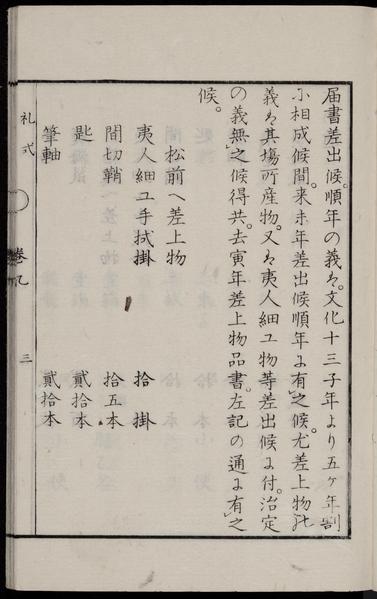 届書差出候。順年の義ハ。文化十三子年より五ヶ年割
ニ相成候間。来未年差出候順年ニ有之候。尤差上物ハ
義ハ其場所産物。又ハ夷人細工物等差出候ニ付。治定
の義無之候得共。去寅年差上物品書。左記の通ニ有之
候。
松前へ差上物
夷人細工手拭掛 拾掛
間切鞘 拾五本
匙 貳拾本
筆軸 貳拾本
礼式 巻九 三